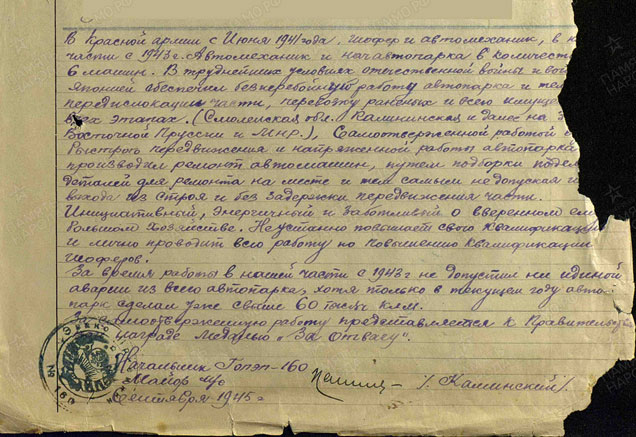 В Красной армии с Июня 1941 года, шофер и автомеханик, в н
части с 1943г. Автомеханик и нач автопарка в количеств
6 машин. В труднейших условиях отечественной войны и вой
Японией обеспечил бесперебойную работу автопарка и тем
передислокацию части, перевозку раненых и всего имуще
всех этапах. (Смоленская обл. Калининская и далее на
Восточной Пруссии и М.Н.Р.), Самоотверженной работой
быстрого передвижения и напряженной работы автопарка
производил ремонт автомашин, путем подборки
деталей для ремонта на месте и тем самым не допуская
выхода из строя и без задержки передвижения части.
Инициативный, энергичный и заботливый о вверенном ему
большом хозяйстве. Неустанно повышает свою квалификацию
и лично проводит всю работу по повышению квалификации
шоферов.
За время работы в нашей части с 1943г не допустил ни единой
аварии из всего автопарка, хотя только в текущем году авто
парк сделал уже свыше 60 тысяч клм.
За самоотверженную работу представляется к Правительств
награде Медалью "За Отвагу".
Начальник ГОПЭП-160
Майор м/с
/. Каминский/.
Сентября 1945 г